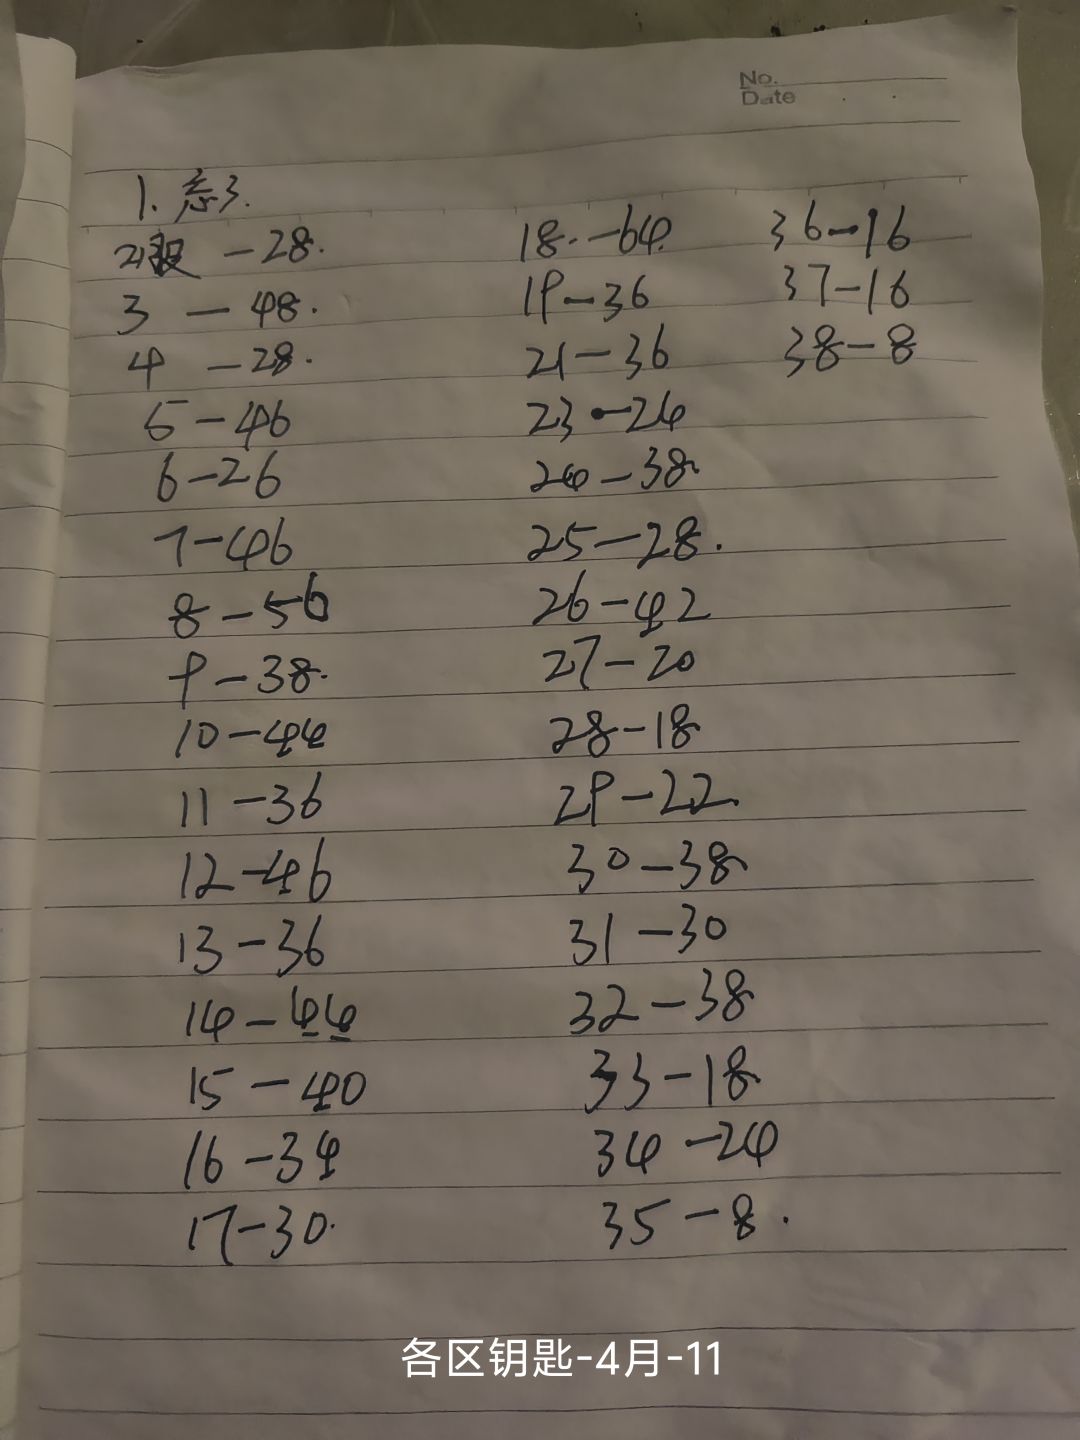 No.
Date
1. 忘了.
2 -28.
3 -48.
4 -28.
5-46
6-26
7-46
8-56
9-38.
10-44
11-36
12-46
13-36
14-44
15-40
16-34
17-30.
18.-64.
19-36
21-36
23-24
24-38.
25-28.
26-42
27-20
28-18
29-22.
30-38
31-30
32-38
33-18
34-24
35-8.
36-16
37-16
38-8
各区钥匙-4月-11